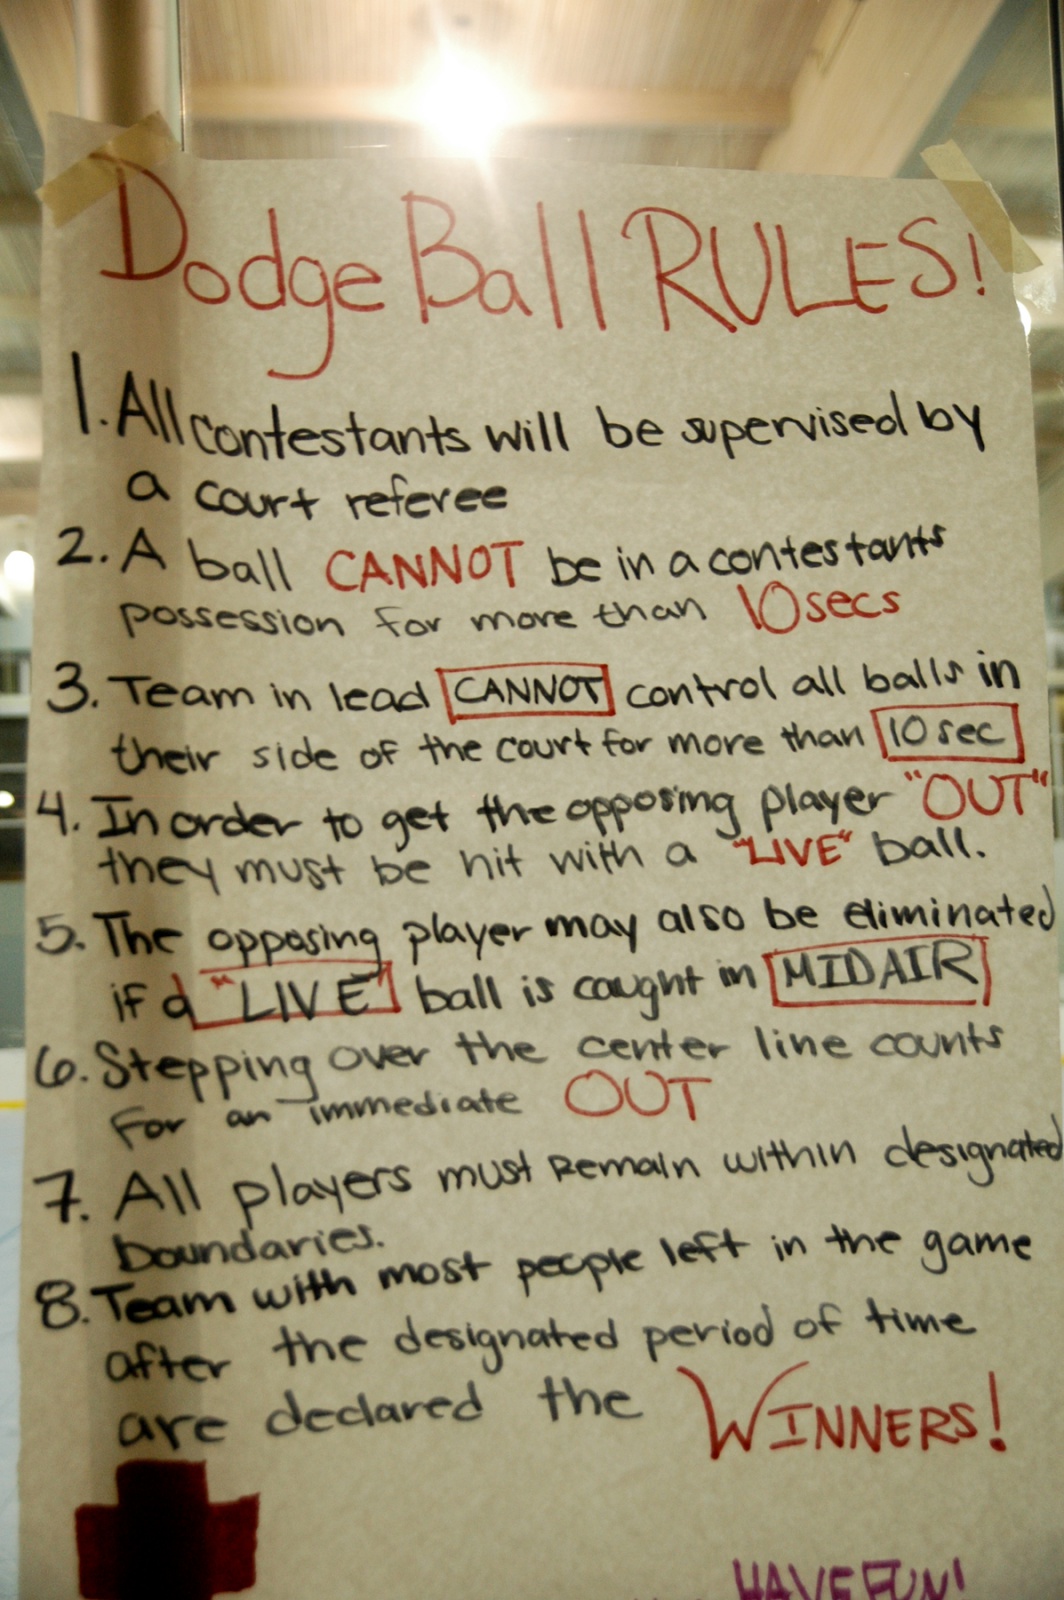 Dodge Ball RULES!
1. All contestants will be supervised by
a court referee
2. A ball CANNOT be in a contestants
possession for more than 10secs
3. Team in lead CANNOT control all balls in
their side of the court for more than 10 sec
4. In order to get the opposing player "OUT"
they must be hit with a "LIVE" ball.
5. The opposing player may also be eliminated
if a "LIVE" ball is caught in MIDAIR
6. Stepping over the center line counts
for an immediate OUT
7. All players must remain within designated
boundaries.
8. Team with most people left in the game
after the designated period of time
are declared the WINNERS!
HAVE FUN!